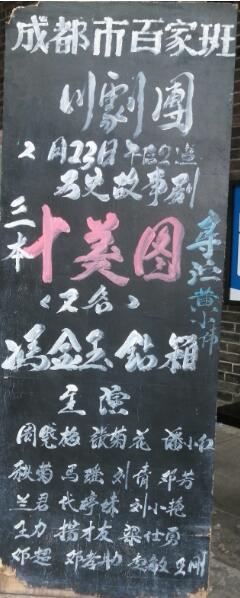 成都市百家班
川劇團
2月22日午后2点
历史故事剧
三本
十美图
导演黄小伟
<又名>
冯金玉钻箱
主演
周晓梅 张菊花 潘小红
秋菊 马瑶 刘倩 邓芳
兰君 代婷妹 刘小艳
王力 杨才友 梁仕贡
邓超 邓孝勤 李敏 王刚